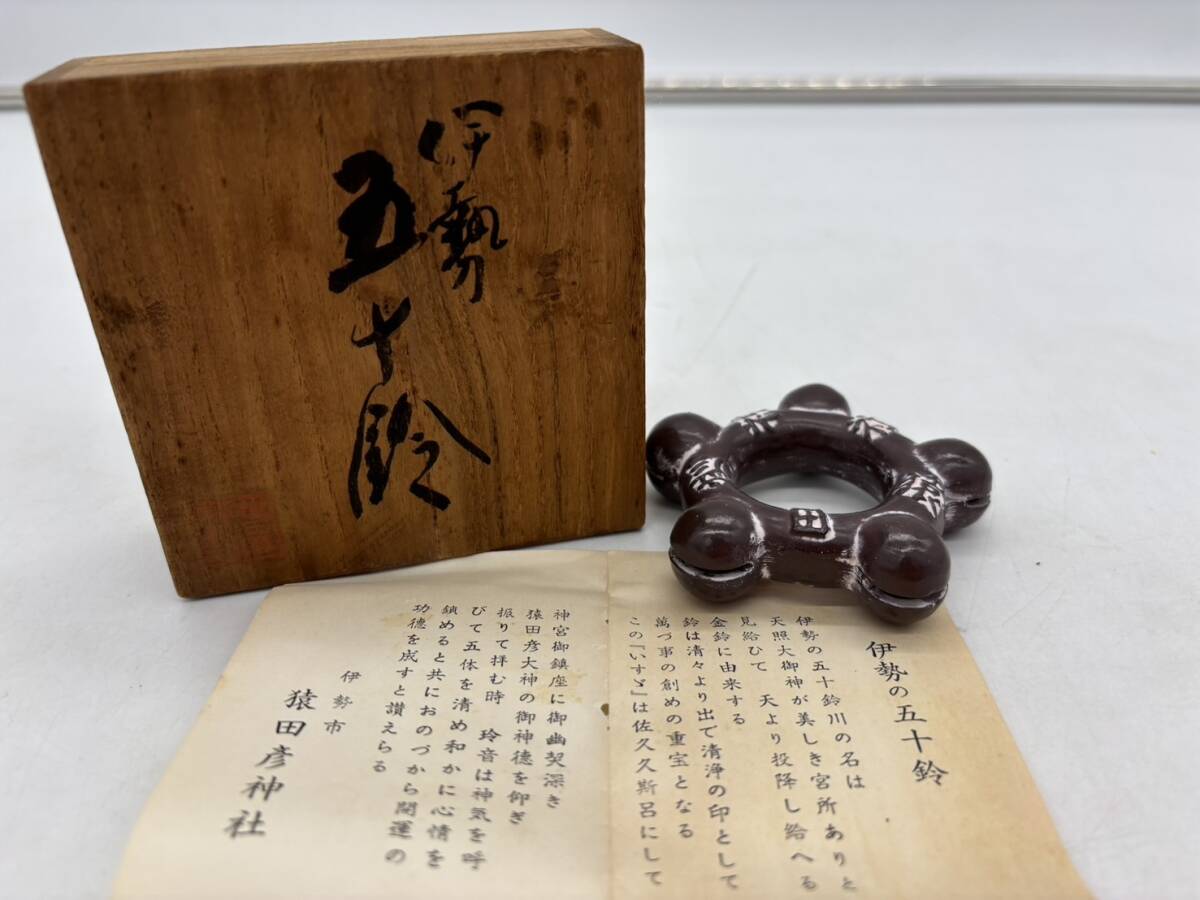 伊勢
五十鈴
伊勢の五十鈴
伊勢の五十鈴川の名は
天照大御神が美しき宮所ありと
見給ひて 天より投降し給へる
金鈴に由来する
鈴は清々より出で清浄の印として
萬づ事の創めの重宝となる
この「いすゞ」は佐久久斯呂にして
神宮御鎮座に御幽契深き
猿田彦大神の御神徳を仰ぎ
振りて拝む時 玲音は神気を呼
びて五体を清め和かに心情を
鎮めると共におのづから開運の
功徳を成すと讃えらる
伊勢市
猿田彦神社
田